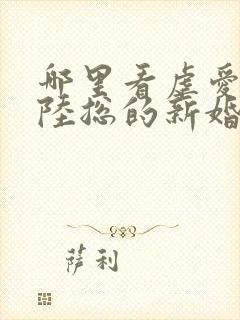 哪里看虐爱
陆总的新婚
萨利